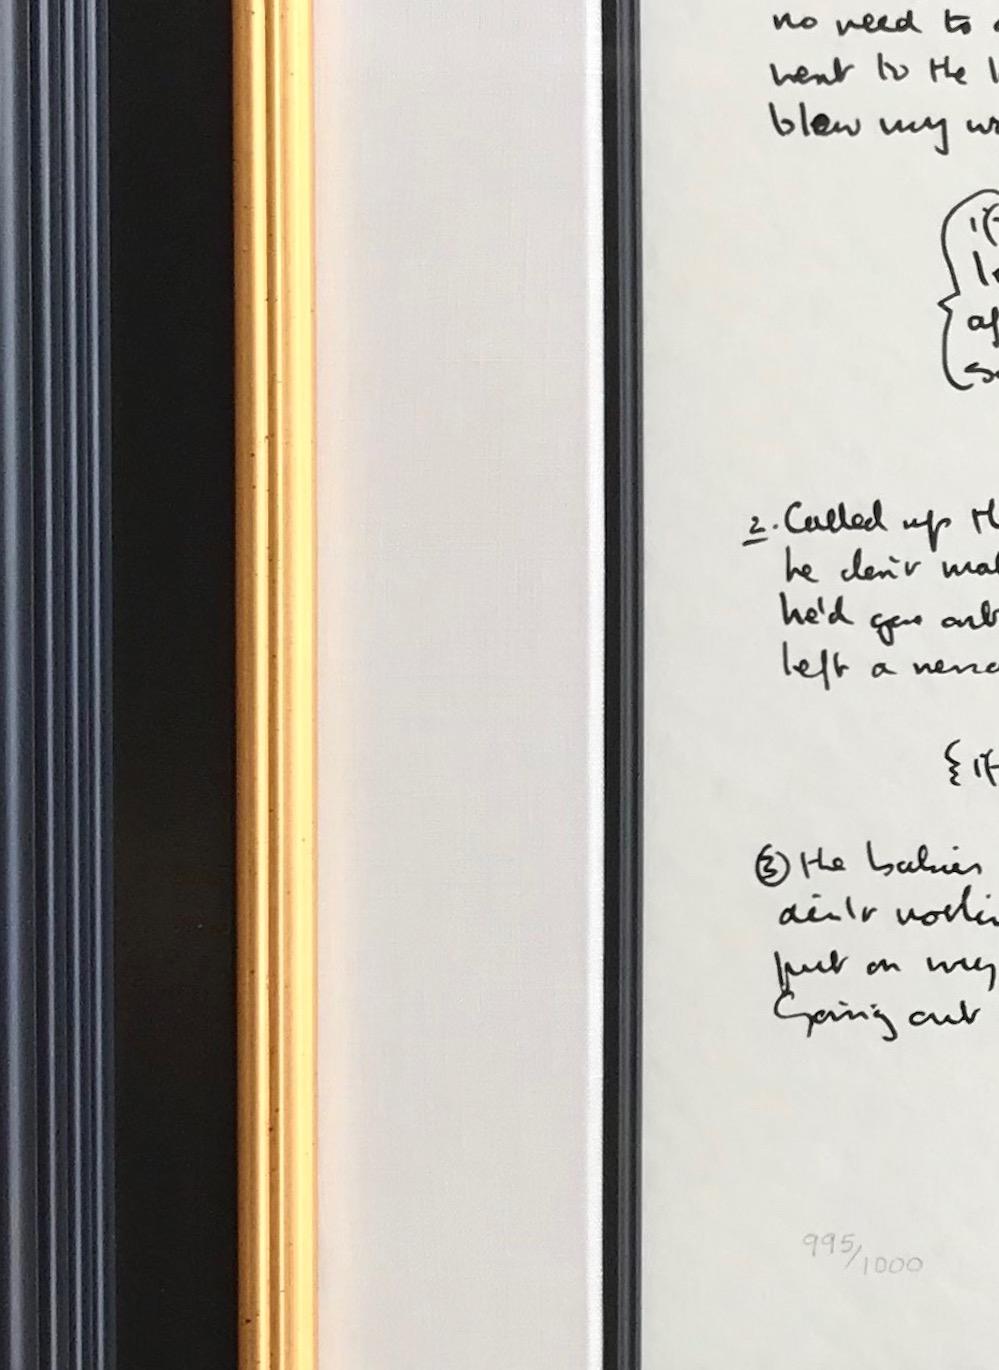 no need to
went to the
blew my
if
2. Called up th
he don't
he'd gone out
left a
{ if
③ the babies
ain't
put on my
Going out
995/1000